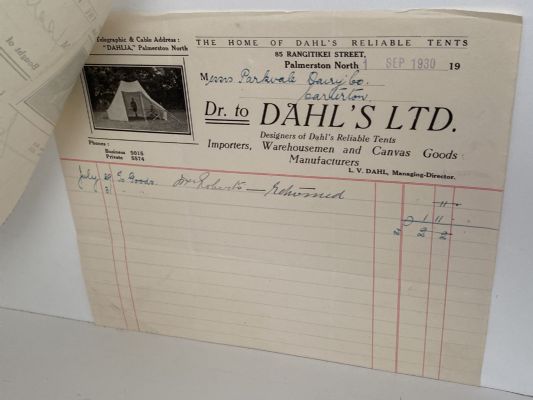 Telegraphic & Cable Address:
"DAHLIA," Palmerston North
THE HOME OF DAHL'S RELIABLE TENTS
85 RANGITIKEI STREET,
Palmerston North 1 SEP 1930 19
Messrs Parkvale Dairy Co.
Carterton.
Dr. to DAHL'S LTD.
Designers of Dahl's Reliable Tents
Importers, Warehousemen and Canvas Goods
Manufacturers
L. V. DAHL, Managing-Director.
Phones:
Business 5015
Private 5574
July To Goods. Roberts — Returned 11
31 11
2 2